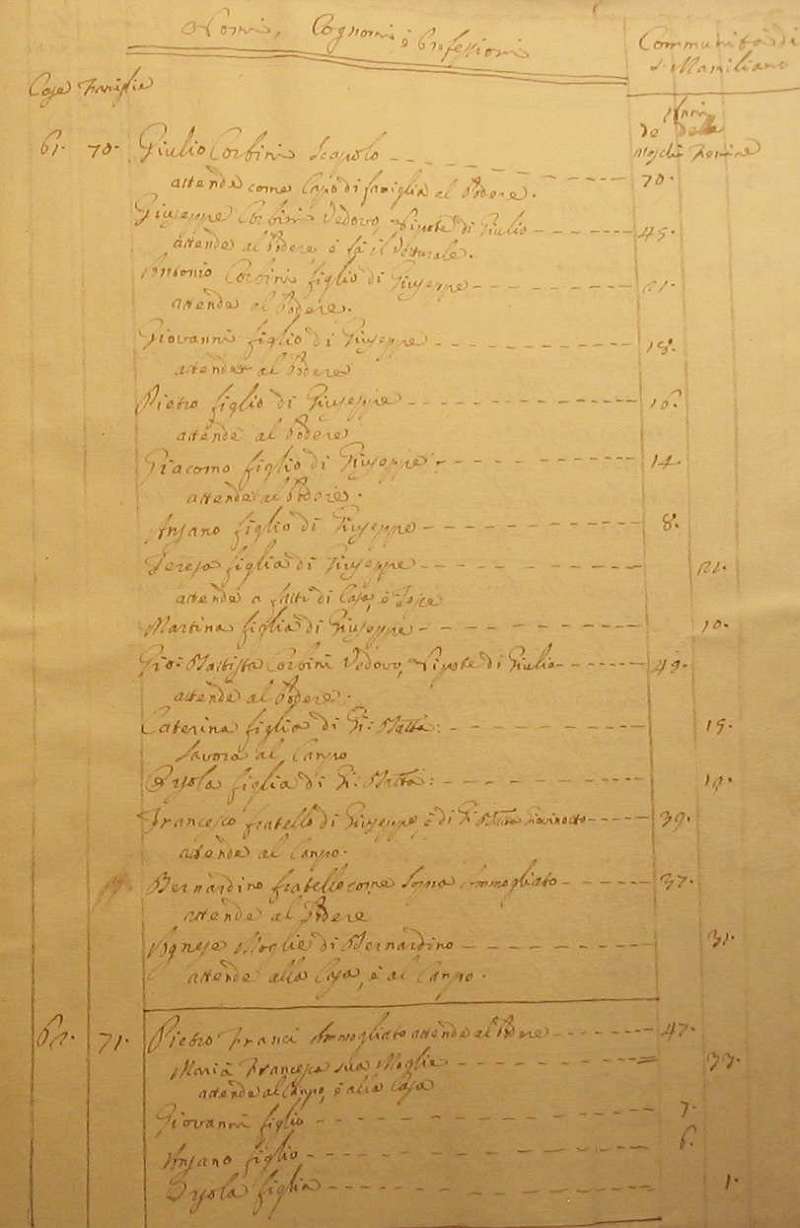 Nomi, Cognomi, e Professioni
Communità di
S. Mamiliano
Case Famiglie
Anni
de Maschi delle Femine
61. 70. Giulio Corbini Scapolo 70.
attende come Capo di famiglia al Podere.
Giuseppe Corbini Vedovo, Nipote di Giulio 45.
attende al Podere e fà il Vetturale.
Antonio Corbini figlio di Giuseppe 21.
attende al Podere.
Giovanni figlio di Giuseppe 18.
attende al Podere
Pietro figlio di Giuseppe 16.
attende al Podere
Giacomo figlio di Giuseppe 14.
attende al Podere.
Ansano figlio di Giuseppe 8.
Teresa figlia di Giuseppe 21.
attende a fatti di Casa, e
Martina figlia di Giuseppe 10.
Gio: Battista Corbini Vedovo, Nipote di Giulio 49.
attende al Podere.
Caterina figlia di G: Batta: 15.
lavora al Campo
Orsola figlia di G: Batta:
Francesco fratello di Giuseppe, e di G: Batta 39.
attende al Campo.
Bernardino fratello come sopra Ammogliato 37.
attende al Podere
Agnese Moglie di Bernardino 31.
attende alla Casa, e al Campo.
62. 71. Pietro Franci Ammogliato attende al Podere 47.
Maria Francesca sua Moglie 33.
attende al Campo, e alla Casa
Giovanni figlio 7.
Ansano figlio 6.
Orsola figlia 1.